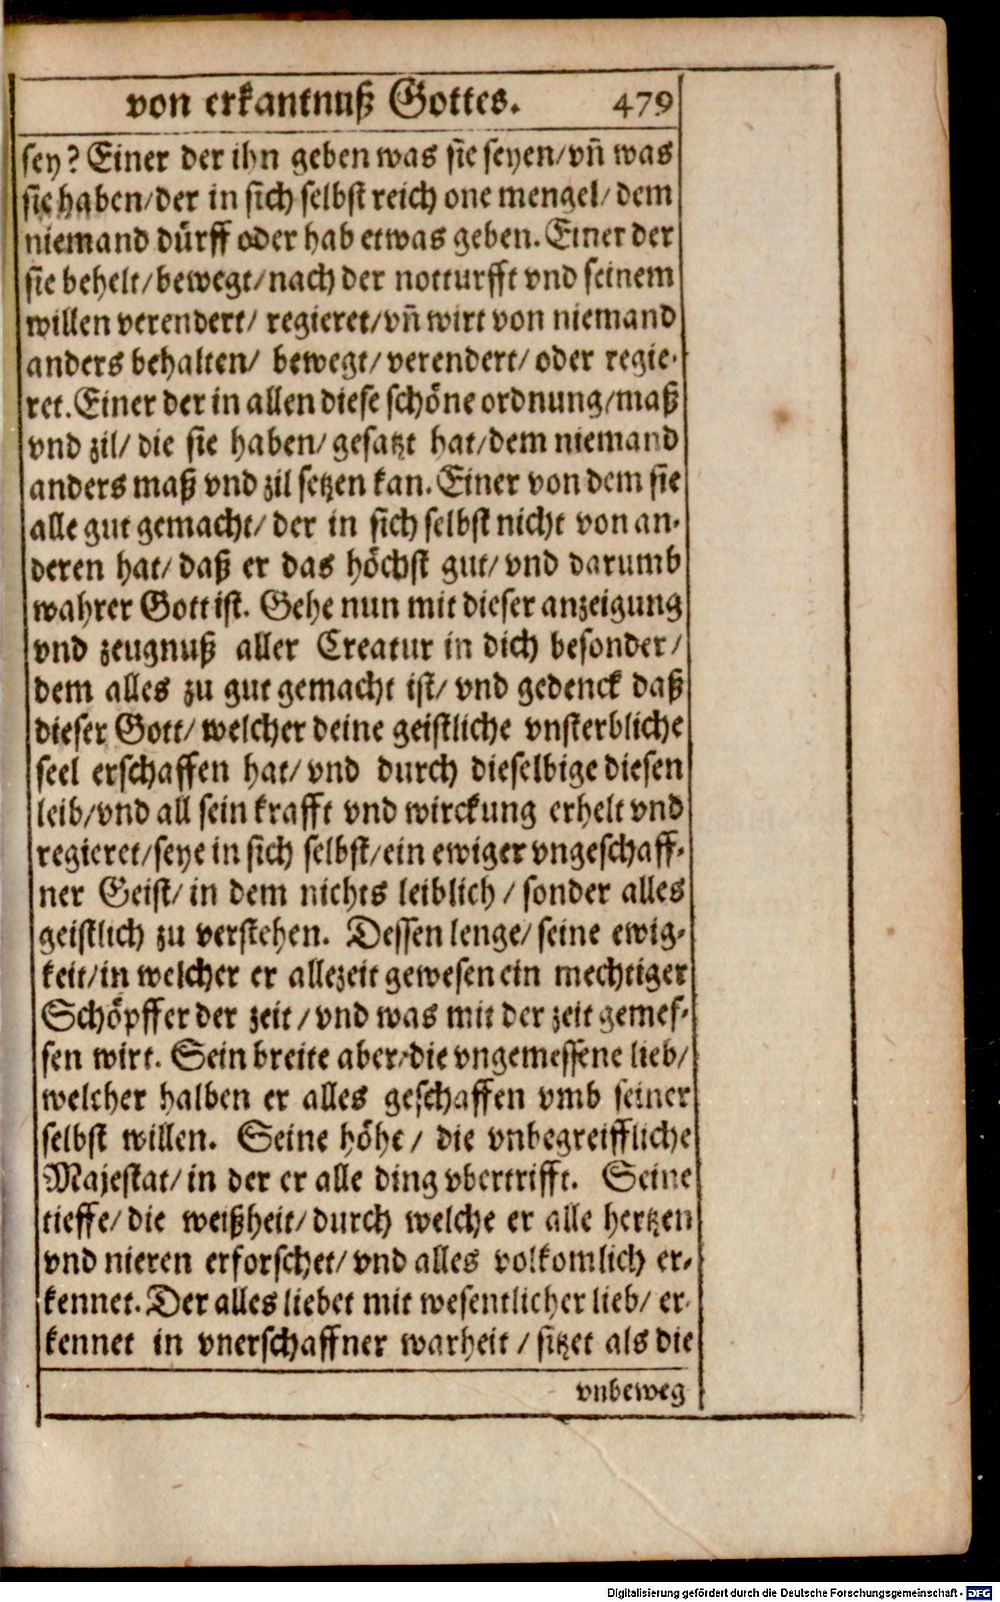 von erkantnuß Gottes. 479
sey? Einer der ihn geben was sie seyen/vñ was
sie haben/der in sich selbst reich one mengel/dem
niemand dürff oder hab etwas geben. Einer der
sie behelt/bewegt/nach der notturfft vnd seinem
willen verendert/ regieret/vñ wirt von niemand
anders behalten/ bewegt/verendert/oder regie-
ret. Einer der in allen diese schöne ordnung/maß
vnd zil/ die sie haben/gesatzt hat/dem niemand
anders maß vnd zil setzen kan. Einer von dem sie
alle gut gemacht/ der in sich selbst nicht von an-
deren hat/ daß er das höchst gut/ vnd darumb
wahrer Gott ist. Gehe nun mit dieser anzeigung
vnd zeugnuß aller Creatur in dich besonder/
dem alles zu gut gemacht ist/ vnd gedenck daß
dieser Gott/ welcher deine geistliche vnsterbliche
seel erschaffen hat/ vnd durch dieselbige diesen
leib/vnd all sein krafft vnd wirckung erhelt vnd
regieret/seye in sich selbst/ein ewiger vngeschaff-
ner Geist/ in dem nichts leiblich / sonder alles
geistlich zu verstehen. Dessen lenge/ seine ewig-
keit/in welcher er allezeit gewesen ein mechtiger
Schöpffer der zeit / vnd was mit der zeit gemes-
sen wirt. Sein breite aber/die vngemessene lieb/
welcher halben er alles geschaffen vmb seiner
selbst willen. Seine höhe / die vnbegreiffliche
Majestat/ in der er alle ding vbertrifft. Seine
tieffe/ die weißheit/durch welche er alle hertzen
vnd nieren erforschet/ vnd alles volkomlich er-
kennet. Der alles liebet mit wesentlicher lieb/ er-
kennet in vnerschaffner warheit / sitzet als die
vnbeweg
Digitalisierung gefördert durch die Deutsche Forschungsgemeinschaft - DFG